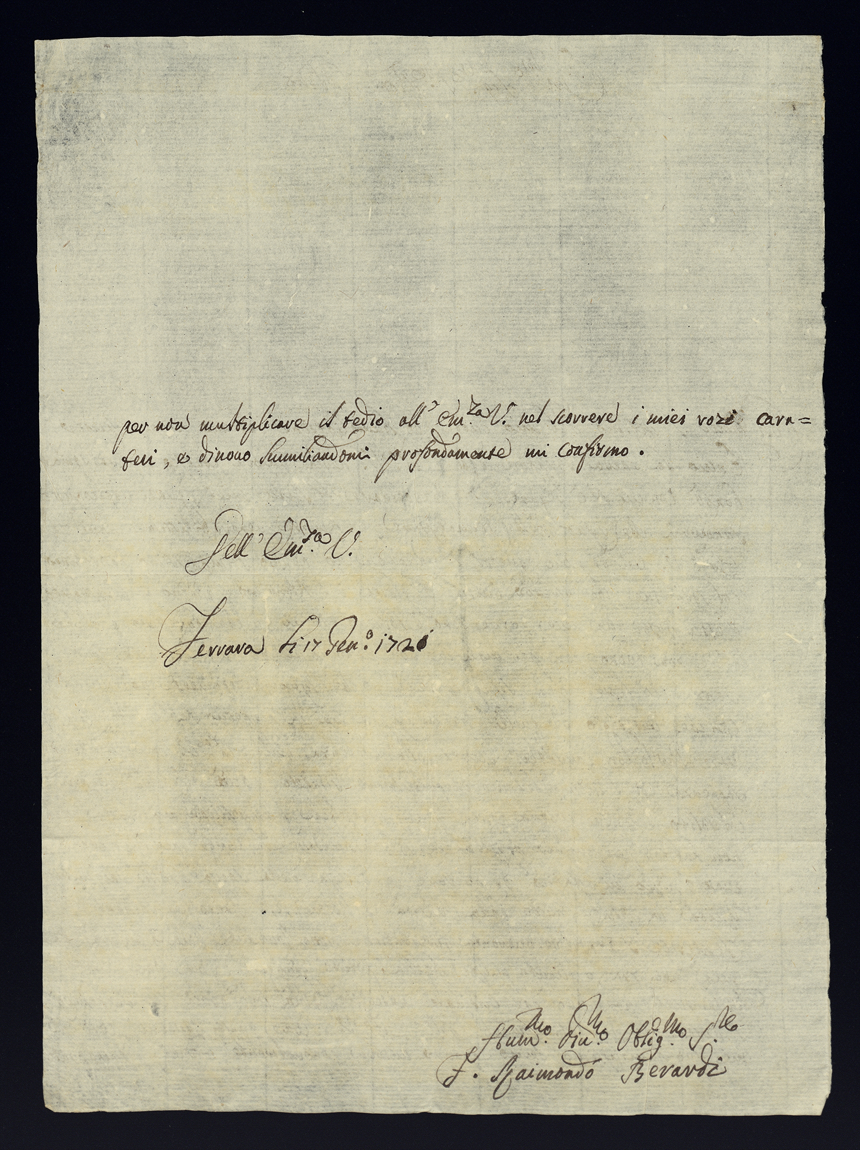 per non multiplicare il tedio all' Em.za V. nel scorrere i miei rozi carat=
teri, e dinovo humiliandomi profondamente mi confirmo.
Dell' Em.za V.
Ferrara li 17 Gen.o 1721
Hum.mo Div.mo Oblig.mo S.re
F. Raimondo Berardi